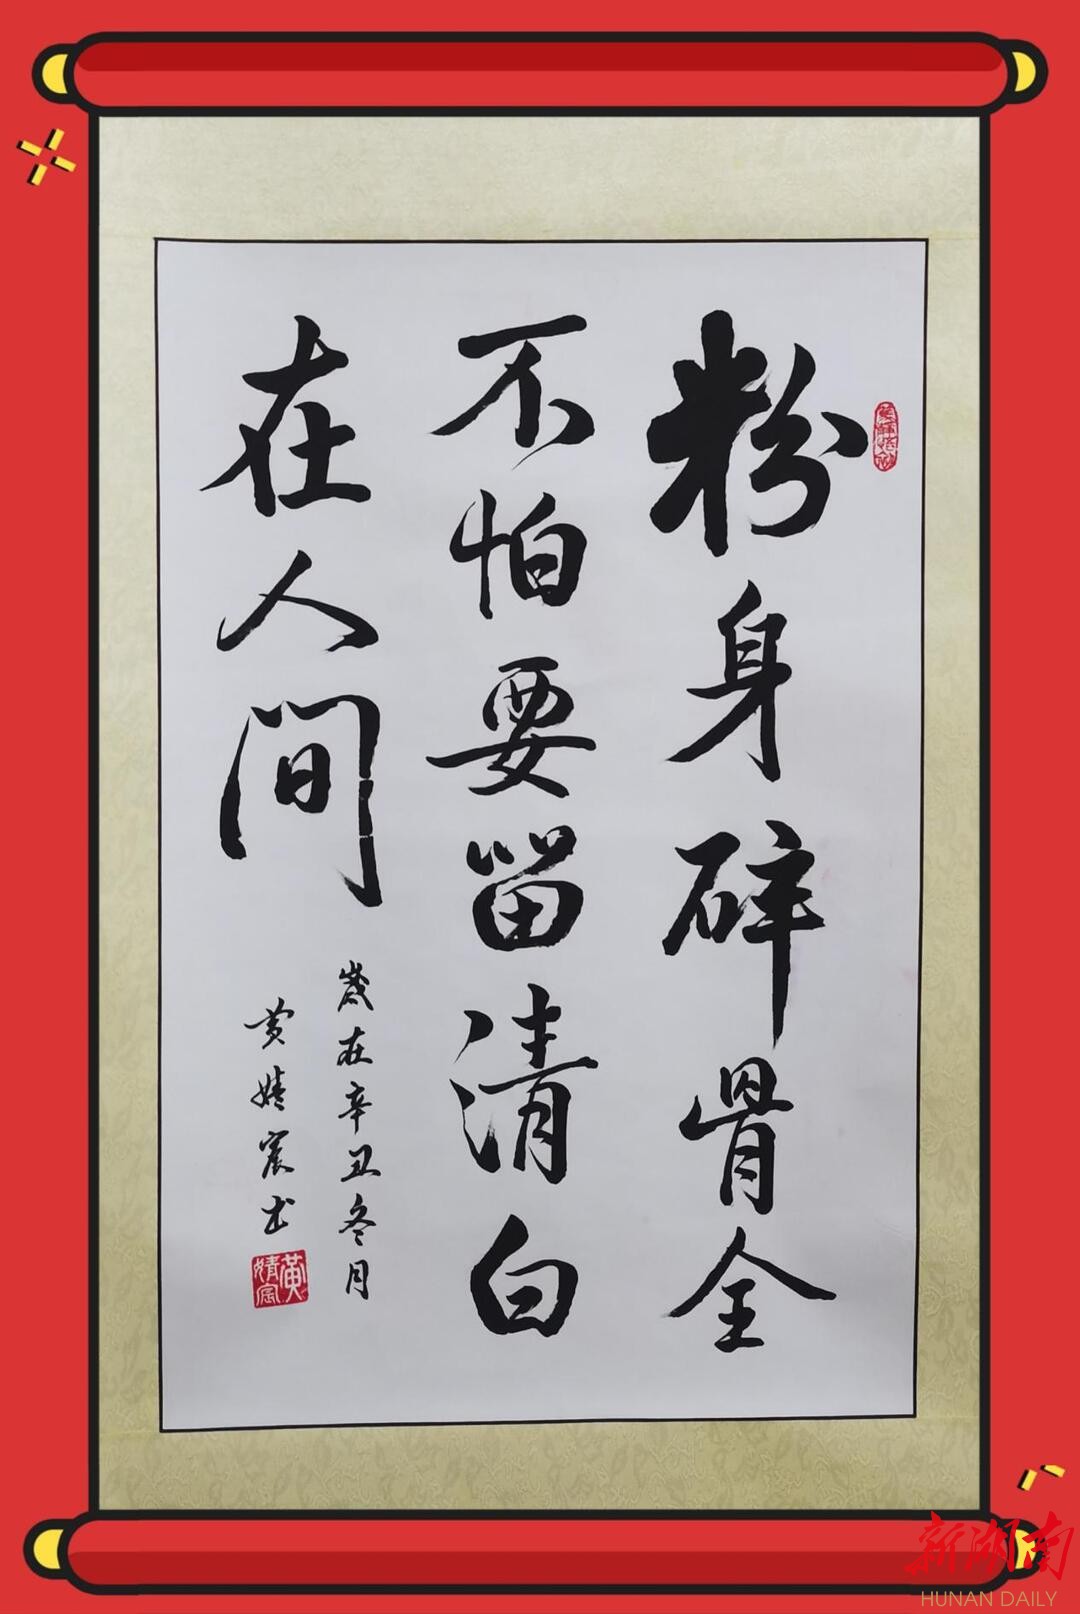 粉身碎骨全
不怕要留清白
在人间
歲在辛丑冬月
黄婧宸书
黄婧宸
新湖南
HUNAN DAILY